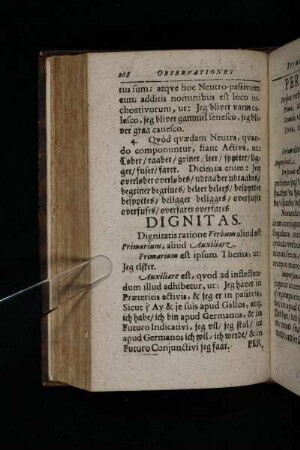 268 OBSERVATIONES
tus sum: atqve hoc Neutro-passivum
cum additis nominibus est loco in-
choativorum, ut: Jeg bliver varm ca-
lesco, jeg bliver gammel senesco, jeg bli-
ver graa canesco.
4. Qvód qvædam Neutra, quan-
do componuntur, fiant Activa, ut:
Løber / raaber / griner / leer / spytter / lig-
ger / fuser / farer. Dicimus enim: Jeg
overløber overløbes / udraaber udraabes /
begriner begrines / beleer beleeß / bespytter
bespyttes / beligger beligges / overfuser
overfuses / overfarer overfares.
DIGNITAS.
Dignitatis ratione Verbum aliud est
Primarium, aliud Auxiliare.
Primarium est ipsum Thema; ut:
Jeg elsker.
Auxiliare est, qvod ad inflecten-
dum illud adhibetur, ut: Jeg haver in
Præteritis activis, & jeg er in passivis,
Sicut j' Ay & je suis apud Gallos, aug.
ich habe / ich bin apud Germanos, & in
Futuro Indicativi, jeg vill / jeg skal / ut
apud Germanos ich wil / ich werde / & in
Futuro Conjunctivi jeg faar.
PER.